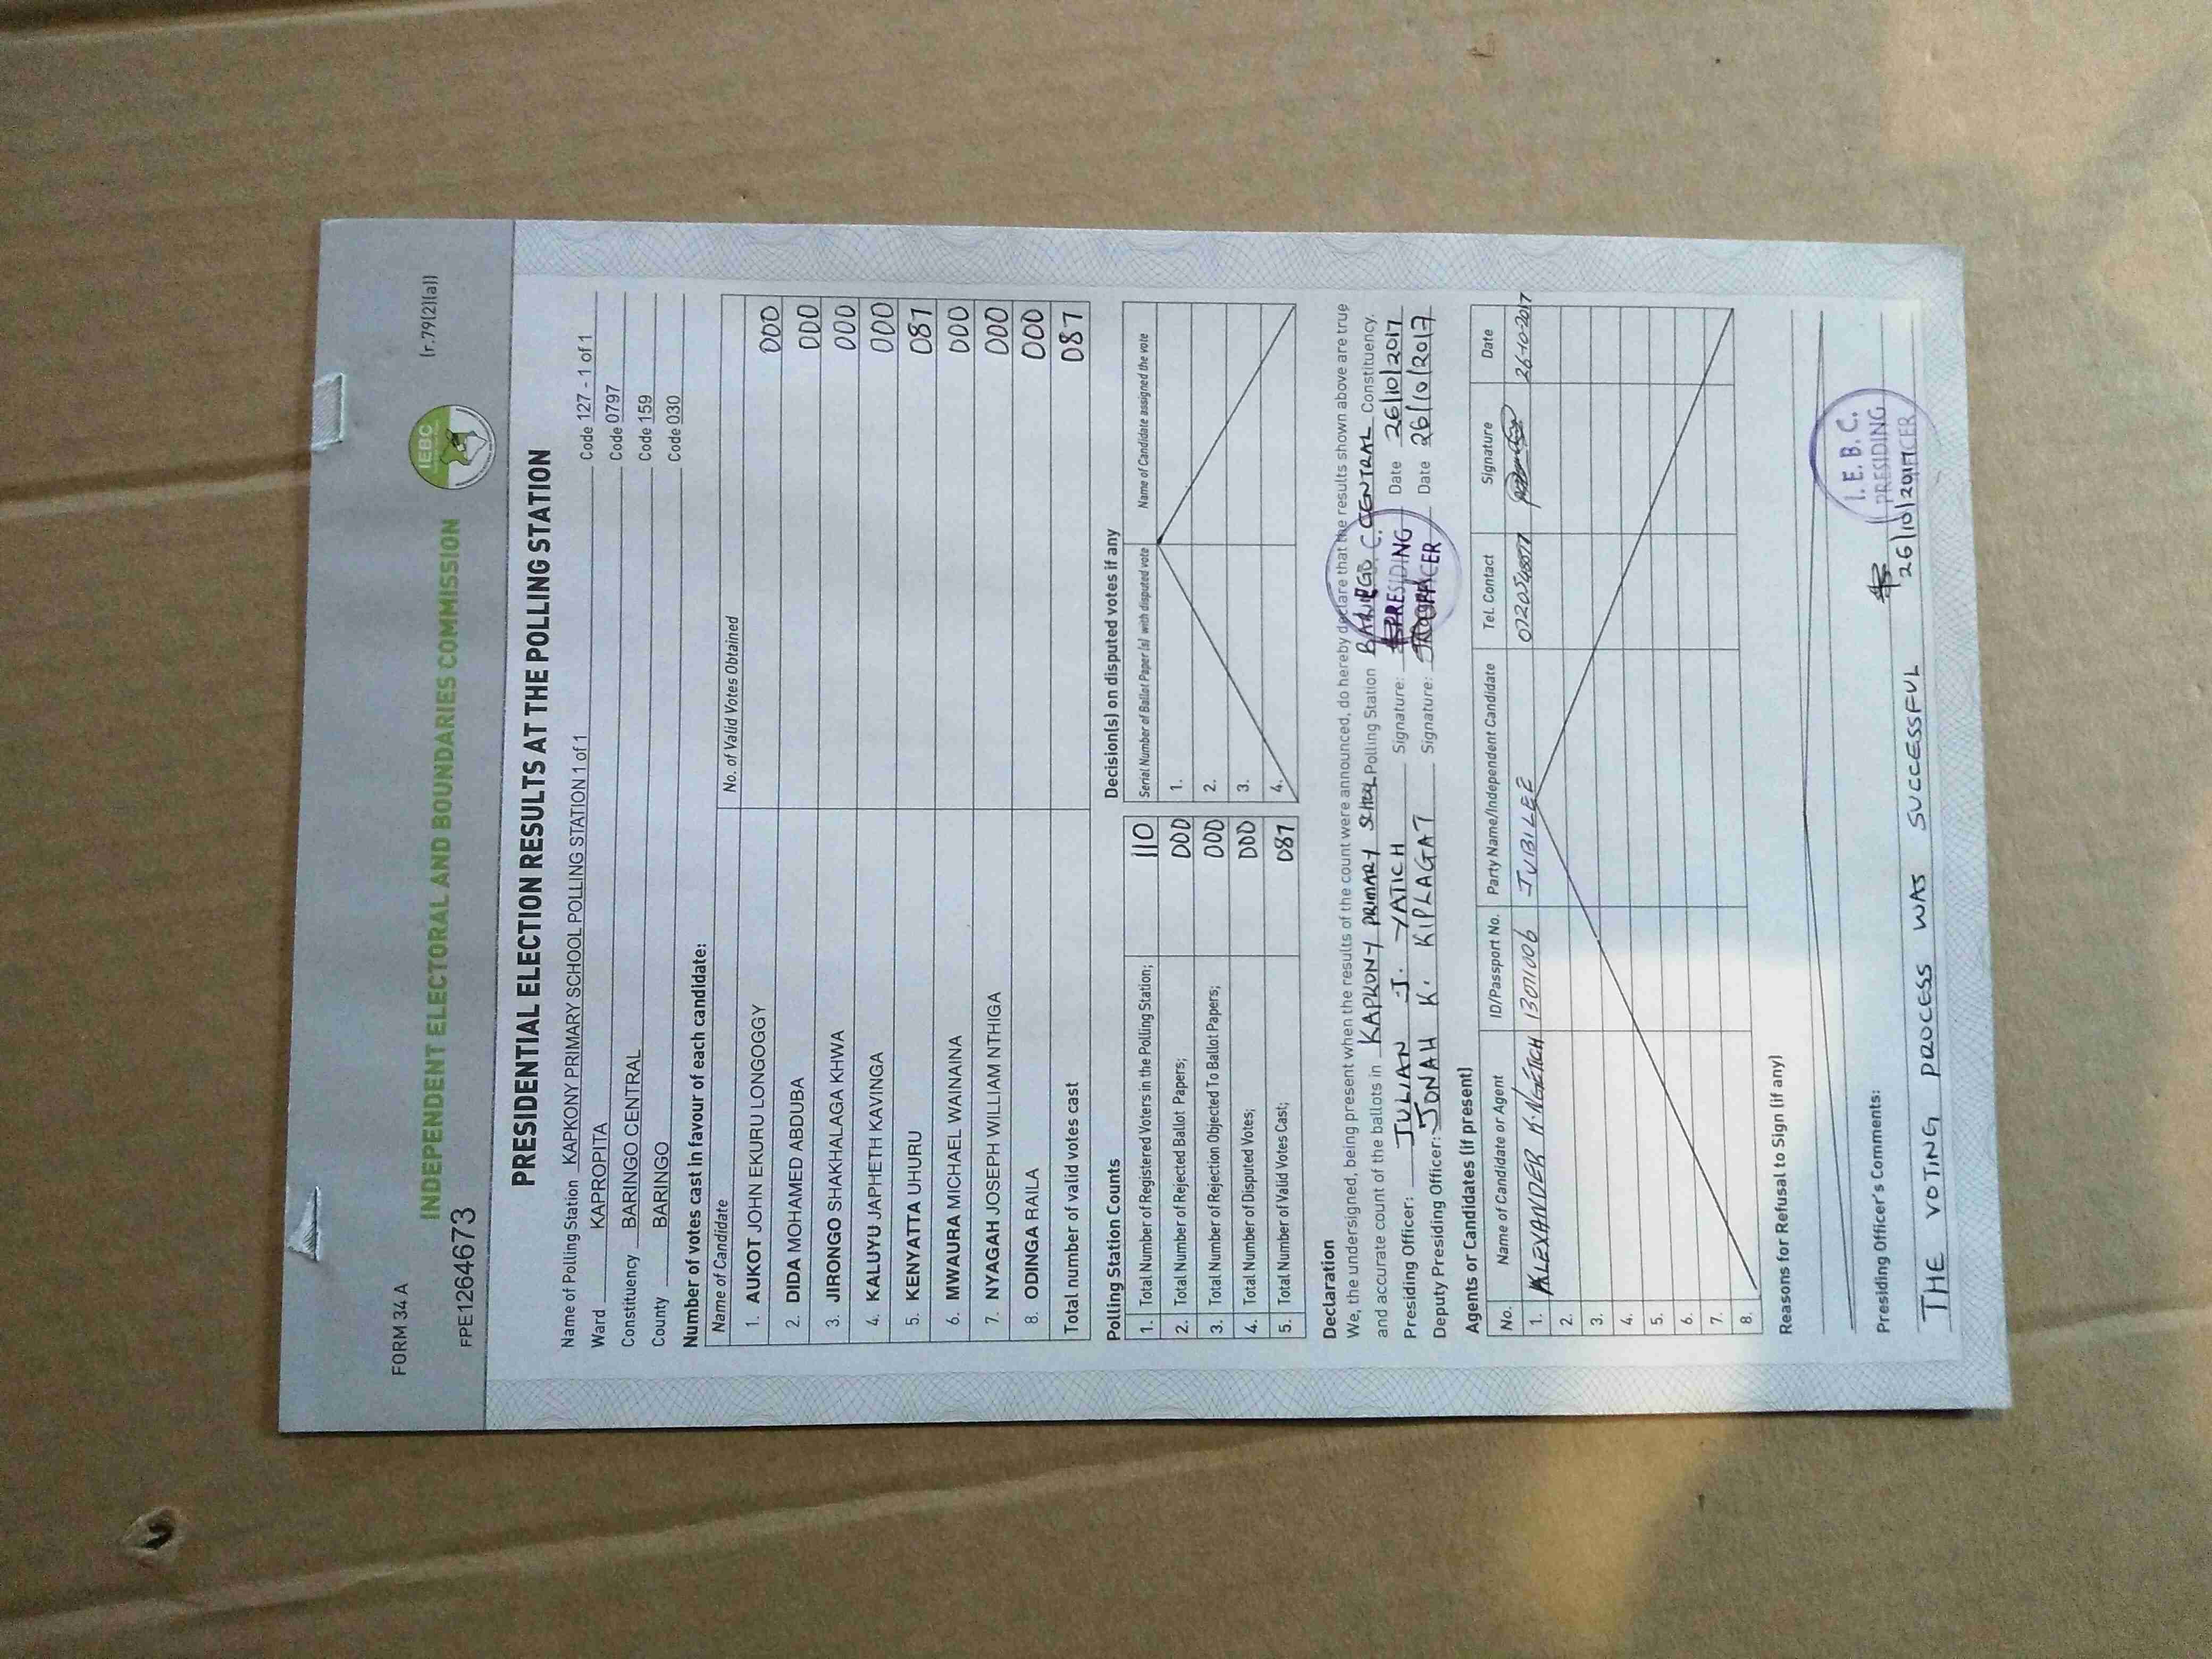 FORM 34 A
(r.79(2)(a))
IEBC
INDEPENDENT ELECTORAL AND BOUNDARIES COMMISSION
FPE1264673
PRESIDENTIAL ELECTION RESULTS AT THE POLLING STATION
Name of Polling Station KAPKONY PRIMARY SCHOOL POLLING STATION 1 of 1 Code 127 - 1 of 1
Ward KAPROPITA Code 0797
Constituency BARINGO CENTRAL Code 159
County BARINGO Code 030
Number of votes cast in favour of each candidate:
Name of Candidate No. of Valid Votes Obtained
1. AUKOT JOHN EKURU LONGOGGY 000
2. DIDA MOHAMED ABDUBA 000
3. JIRONGO SHAKHALAGA KHWA 000
4. KALUYU JAPHETH KAVINGA 000
5. KENYATTA UHURU 087
6. MWAURA MICHAEL WAINAINA 000
7. NYAGAH JOSEPH WILLIAM NTHIGA 000
8. ODINGA RAILA 000
Total number of valid votes cast 087
Polling Station Counts
1. Total Number of Registered Voters in the Polling Station; 110
2. Total Number of Rejected Ballot Papers; 000
3. Total Number of Rejection Objected To Ballot Papers; 000
4. Total Number of Disputed Votes; 000
5. Total Number of Valid Votes Cast; 087
Decision(s) on disputed votes if any
Serial Number of Ballot Paper (s) with disputed vote Name of Candidate assigned the vote
1.
2.
3.
4.
Declaration
We, the undersigned, being present when the results of the count were announced, do hereby declare that the results shown above are true
and accurate count of the ballots in KAPKONY PRIMARY SCHOOL Polling Station BARINGO CENTRAL Constituency.
Presiding Officer: JULIAN J. YATICH Signature: Date 26/10/2017
Deputy Presiding Officer: JONAH K. KIPLAGAT Signature: Date 26/10/2017
PRESIDING
OFFICER
Agents or Candidates (if present)
No. Name of Candidate or Agent ID/Passport No. Party Name/Independent Candidate Tel. Contact Signature Date
1. ALEXANDER K. NGETICH 13071006 JUBILEE 26-10-2017
2.
3.
4.
5.
6.
7.
8.
Reasons for Refusal to Sign (if any)
Presiding Officer's Comments:
THE VOTING PROCESS WAS SUCCESSFUL 26/10/2017
I. E. B. C.
PRESIDING
OFFICER